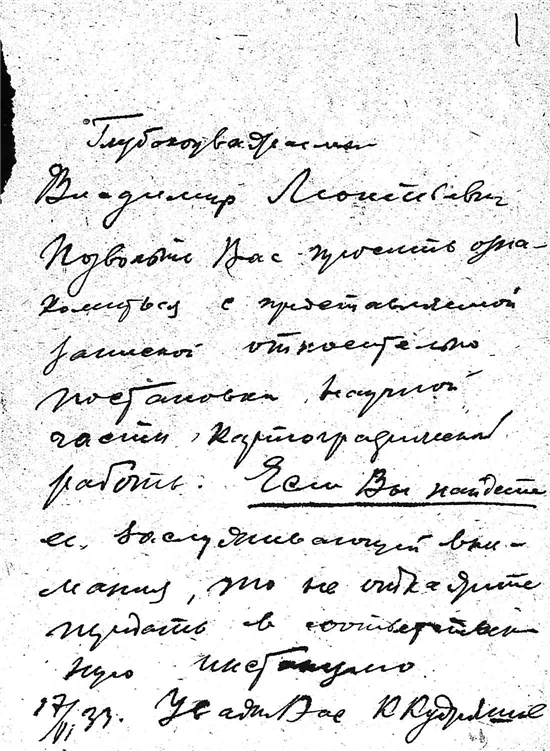 1
Глубокоуважаемый
Владимир Леонтьевич
Позвольте Вас просить озна-
комиться с представляемой
запиской относительно
постановки научной
части картографической
работы. Если Вы найдете
ее заслуживающей вни-
мания, то не откажите
передать в соответствен
ную инстанцию
17/VI 33. Уважающий Вас К Кудряшов